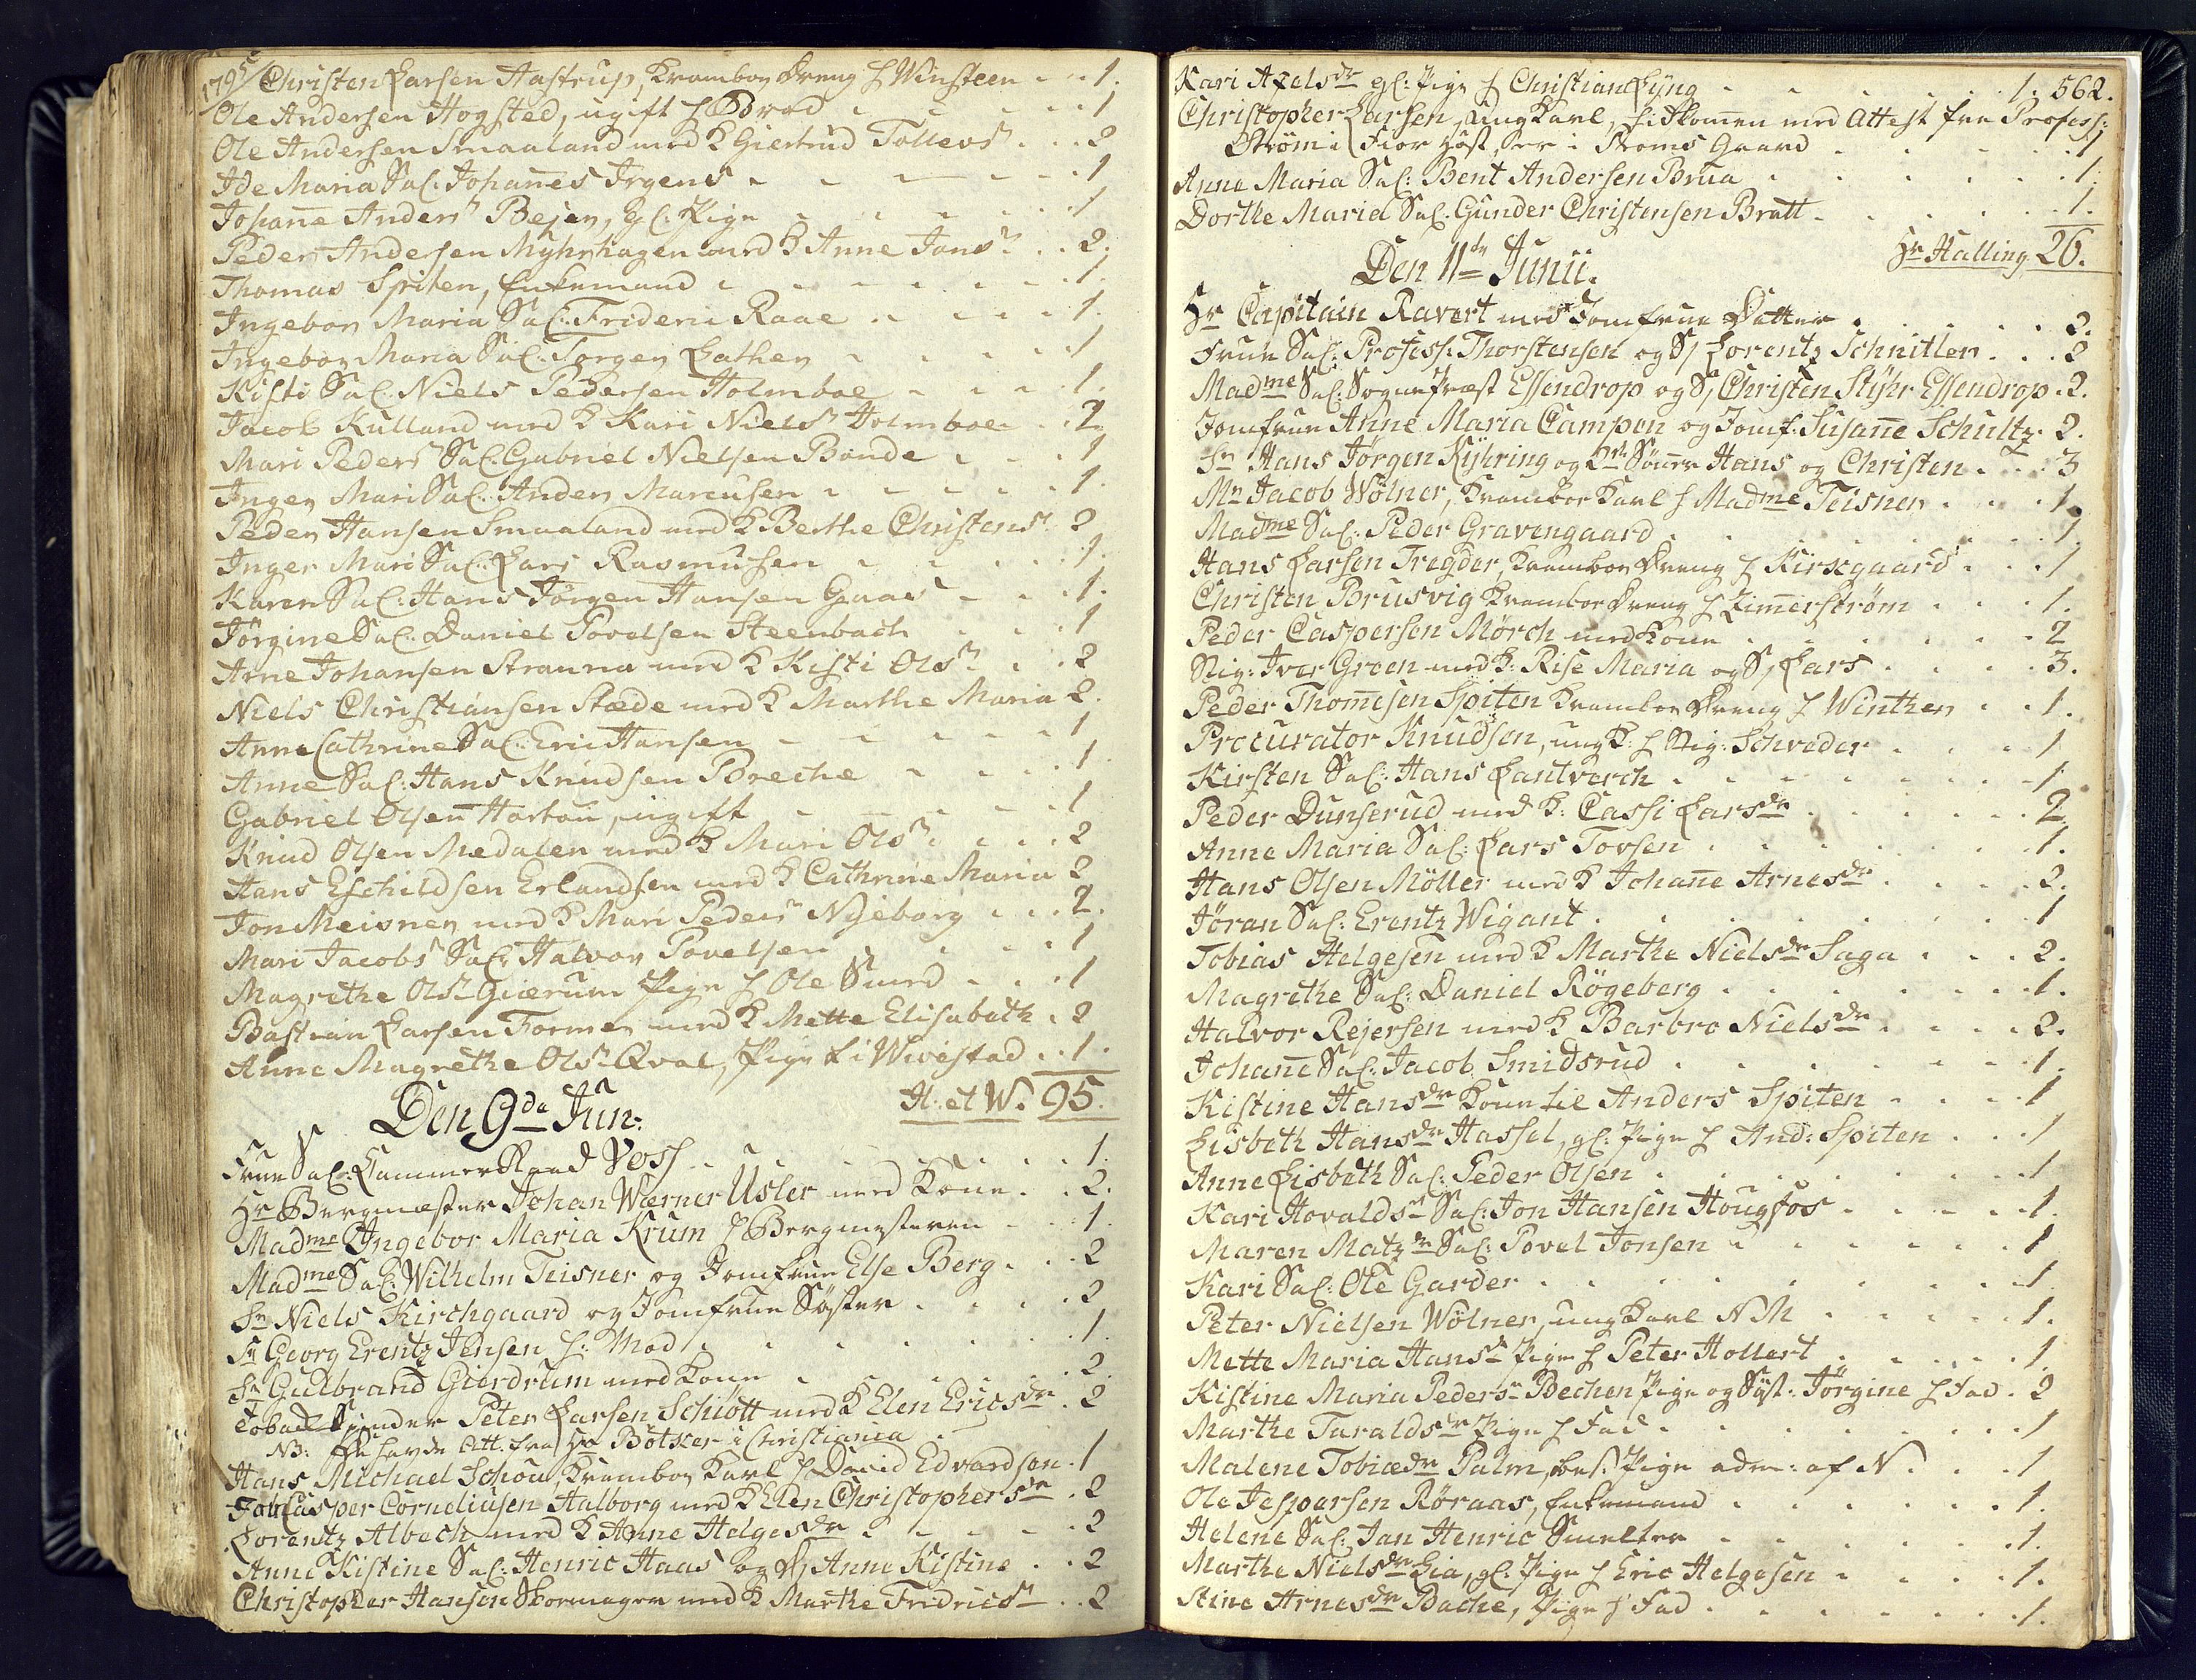 1795 Christen Larsen Aastrup, Krambor Dreng h Winsteen . . 1.
Ole Andersen Hogsted, ugift h Edvad . . . 1
Ole Andersen Smaaland med K Giertrud Tollevs . . . 2
Ide Maria Sal: Johannes Irgens . . . 1
Johanne Anders Bejer, gl: Pige . . . 1
Peder Andersen Myhrhagen med K Anne Jans . . 2.
Thomas Spiten, Enkemand . . . 1.
Ingebor Maria Sal: Frideric Raae . . . 1.
Ingebor Maria Sal: Jørgen Lathen . . . 1
Kisti Sal: Niels Pedersen Holmboe . . . 1.
Jacob Kulland med K Kari Niels Holmboe . . 2.
Mari Peders Sal: Gabriel Nielsen Bonde . . . 1
Inger Mari Sal: Anders Marcusen . . . 1.
Peder Hansen Smaaland med K Berthe Christens 2
Inger Mari Sal: Lars Rasmusen . . . 1.
Karen Sal: Hans Jörgen Hansen Gaas . . . 1.
Jörgine Sal: Daniel Povelsen Steenbach . . . 1
Arne Johansen Stranna med K Kisti Ols . . . 2
Niels Christiansen Stæde med K Marthe Maria 2.
Anne Cathrine Sal: Eric Hansen . . . 1
Anne Sal: Hans Knudsen Breche . . . 1.
Gabriel Olsen Hortau, ugift . . . 1
Knud Olsen Medalen med K Mari Ols . . . 2
Hans Eschildsen Erlandsen med K Cathrine Maria 2
Jon Meisner med K Mari Peders Nyeborg . . . 2.
Mari Jacobs Sal: Halvor Povelsen . . . 1
Magrethe Ols Giærum Pige h Ole Smed . . . 1
Bastian Larsen Former med K Mette Elisabeth . 2
Anne Magrethe Ols Qval, Pige h i Wivestad . . 1.
H. et W. 95.
Den 9de Jun:
Frue Sal: Cammer Raad Voss . . . 1.
Hr Bergmester Johan Wærner Usler med Kone . . . 2.
Madme Ingebor Maria Krum h Bergmesteren . . . 1.
Madme Sal: Wilhelm Teisner og Jomfrue Else Berg . . . 2
Sr Niels Kirchgaard og Jomfrue Søster . . . 2
Sr Georg Erentz Jensen h: Mod . . . 1.
Sr Gulbrand Gierdrum med Kone . . . 2.
Tobak Spinder Peter Larsen Schiött med K Elen Ericsdr . 2
NB: de havde Att: fra Hr Bötker i Christiania
Hans Michael Schou, Krambor Karl h David Edvardson . 1
Joh Casper Corneliusen Aalborg med K Elen Christophersdr . 2
Lorentz Albech med K Anne Helgesdr . . . 2
Anne Kistine Sal: Henric Haas og D Anne Kistine . . 2
Christopher Hansen Skomager med K Marthe Fridrics . . 2
Kari Axelsdr gl: Pige h Christian Lyng . . . 1. 562.
Christopher Larsen, ung Karl, hidkommen med Attest fra Profess:
Ström i Fior Høst, er i Stroms Gaard . . . 1
Anne Maria Sal: Bent Andersen Brua . . . 1.
Dorthe Maria Sal: Gunder Christensen Bratt . . . 1.
Hr Halling 26.
Den 11te Junii.
Hr Capitain Ravert med Jomfrue Datter . . . 2.
Frue Sal: Profess: Thorstensen og S Lorentz Schnitler . . . 2
Madme Sal: Sognepræst Essendrop og S Christen Styhr Essendrop . 2.
Jomfrue Anne Maria Campen og Jomf: Susanne Schultz . 2.
Sr Hans Jörgen Kyhring og 2de Sønner Hans og Christen . . . 3
Mr Jacob Wölner, Krambor Karl h Madme Teisner . . . 1.
Madme Sal: Peder Gravengaard . . . 1.
Hans Larsen Tregder, Krambor Dreng h Kirscgaard . . . 1
Christen Brusvig Krambor Dreng h Zimmerström . . . 1.
Peder Caspersen Mörch med Kone . . . 2
Stig: Iver Green med K: Rise Maria og S, Lars . . . 3.
Peder Thomesen Spiten Krambor Dreng h Winther . . . 1.
Procurator Knudsen, ung K: h Stig: Schrøder . . . 1
Kirsten Sal: Hans Lantverch . . . 1.
Peder Dunserud med K: Cassi Larsdr . . . 2.
Anne Maria Sal: Lars Tovsen . . . 1.
Hans Olsen Möller med K Johanne Arnesdr . . . 2.
Jöran Sal: Erentz Wigant . . . 1
Tobias Helgesen med K Marthe Nielsdr Saga . . . 2.
Magrethe Sal: Daniel Rögeberg . . . 1.
Halvor Rejersen med K Barbro Nielsdr . . . 2.
Johanne Sal: Jacob Smidsrud . . . 1.
Kistine Hansdr Kone til Anders Spiten . . . 1
Lisbeth Hansdr Hassel, gl: Pige h And: Spiten . . . 1
Anne Lisbeth Sal: Peder Olsen . . . 1
Kari Hovaldsdr Sal: Jon Hansen Hougfos . . . 1.
Maren Matzdr Sal: Povel Jonsen . . . 1
Kari Sal: Ole Garder . . . 1
Peter Nielsen Wölner, ung Karl NM . . . 1.
Mette Maria Hansdr Pige h Peter Hollert . . . 1
Kistine Maria Pedersdr Bechen Pige og Syst: Jörgine h Fad . 2
Marthe Taraldsdr Pige h Fad . . . 1
Malene Tobiædr Palm, bes: Pige adm: af N . . . 1
Ole Jespersen Röraas, Enkemand . . . 1.
Helene Sal: Jan Henric Smelter . . . 1.
Marthe Nielsdr Lia, gl: Pige h Eric Helgesen . . . 1.
Stine Arnesdr Bache, Pige h Fad . . . 1.